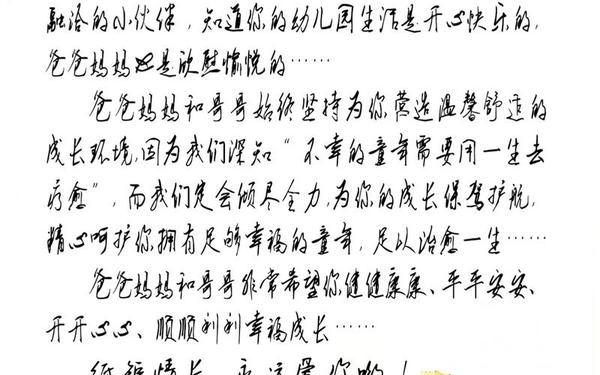 融洽的小伙伴，知道你的幼儿园生活是开心快乐的，
爸爸妈妈也是欣慰愉悦的……
爸爸妈妈和哥哥始终坚持为你营造温馨舒适的
成长环境，因为我们深知“不幸的童年需要用一生去
疗愈”，而我们定会倾尽全力，为你的成长保驾护航，
精心呵护你拥有足够幸福的童年，足以治愈一生……
爸爸妈妈和哥哥非常希望你健健康康、平平安安、
开开心心、顺顺利利幸福成长……
纸短情长，永远爱你哟！